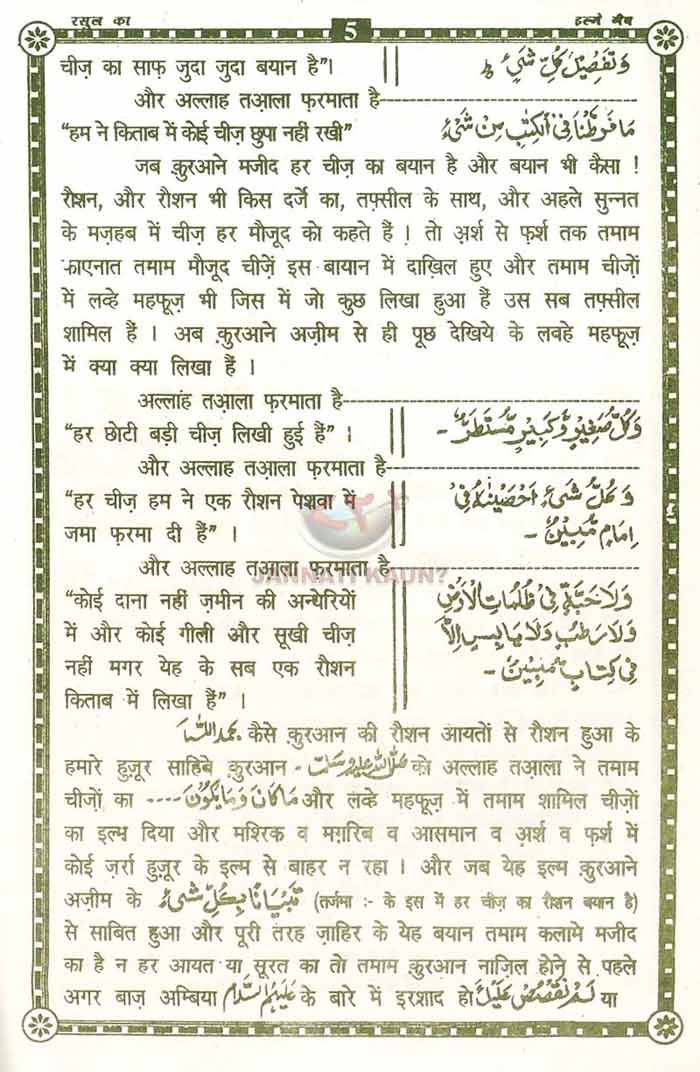 रसूल का 5 इल्मे ग़ैब
चीज़ का साफ़ जुदा जुदा बयान है”। وَتَفْصِيْلَ كُلِّ شَيْءٍ ط
और अल्लाह तआ़ला फ़रमाता है
“हम ने किताब में कोई चीज़ छुपा नहीं रखी” مَا فَرَّطْنَا فِي الْكِتٰبِ مِنْ شَيْءٍ
जब क़ुरआने मजीद हर चीज़ का बयान है और बयान भी कैसा !
रौशन, और रौशन भी किस दर्जे का, तफ़्सील के साथ, और अहले सुन्नत
के मज़हब में चीज़ हर मौजूद को कहते हैं । तो अ़र्श से फ़र्श तक तमाम
काएनात तमाम मौजूद चीज़ें इस बायान में दाख़िल हुए और तमाम चीज़ों
में लव्हे महफ़ूज़ भी जिस में जो कुछ लिखा हुआ हैं उस सब तफ़्सील
शामिल हैं । अब क़ुरआने अज़ीम से ही पूछ देखिये के लवहे महफ़ूज़
में क्या क्या लिखा हैं ।
अल्लाह तआ़ला फ़रमाता है
“हर छोटी बड़ी चीज़ लिखी हुई हैं” । وَكُلُّ صَغِيْرٍ وَّكَبِيْرٍ مُّسْتَطَرٌ -
और अल्लाह तआ़ला फ़रमाता है
“हर चीज़ हम ने एक रौशन पेशवा में وَكُلَّ شَيْءٍ اَحْصَيْنٰهُ فِيْ
जमा फ़रमा दी हैं” । اِمَامٍ مُّبِيْنٍ -
और अल्लाह तआ़ला फ़रमाता है
JANNATI KAUN?
“कोई दाना नहीं ज़मीन की अन्धेरियों وَلَا حَبَّةٍ فِيْ ظُلُمَاتِ الْاَرْضِ
में और कोई गीली और सूखी चीज़ وَلَا رَطْبٍ وَّلَا يَابِسٍ اِلَّا
नहीं मगर येह के सब एक रौशन فِيْ كِتَابٍ مُّبِيْنٍ -
किताब में लिखा हैं” ।
कैसे क़ुरआन की रौशन आयतों से रौशन हुआ के
हमारे हुज़ूर साहिबे क़ुरआन - صلی اللہ علیہ وسلم को अल्लाह तआ़ला ने तमाम
चीज़ों का .... مَا كَانَ وَمَا يَكُوْنُ और लव्हे महफ़ूज़ में तमाम शामिल चीज़ों
का इल्म दिया और मश्रिक व मग़रिब व आसमान व अ़र्श व फ़र्श में
कोई ज़र्रा हुज़ूर के इल्म से बाहर न रहा । और जब येह इल्म क़ुरआने
अज़ीम के تِبْيَانًا لِكُلِّ شَيْءٍ (तर्जमा :- के इस में हर चीज़ का रौशन बयान है)
से साबित हुआ और पूरी तरह ज़ाहिर के येह बयान तमाम कलामे मजीद
का है न हर आयत या सूरत का तो तमाम क़ुरआन नाज़िल होने से पहले
अगर बाज़ अम्बिया عَلَيْهِمُ السَّلَام के बारे में इरशाद हो لَمْ نَقْصُصْ عَلَيْكَ या